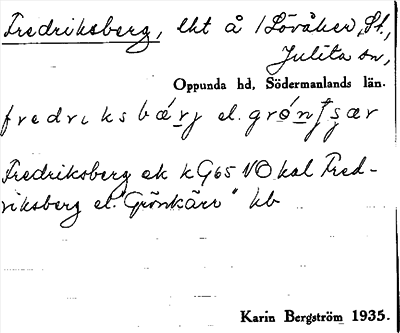 Fredriksberg, lht å /Lövåker, St.,
Julita sn,
Oppunda hd, Södermanlands län.
fredriksbærj el. grönſær
Fredriksberg ek k G65 NO kal Fred-
riksberg el. "Grönkärr" kb
Karin Bergström 1935.